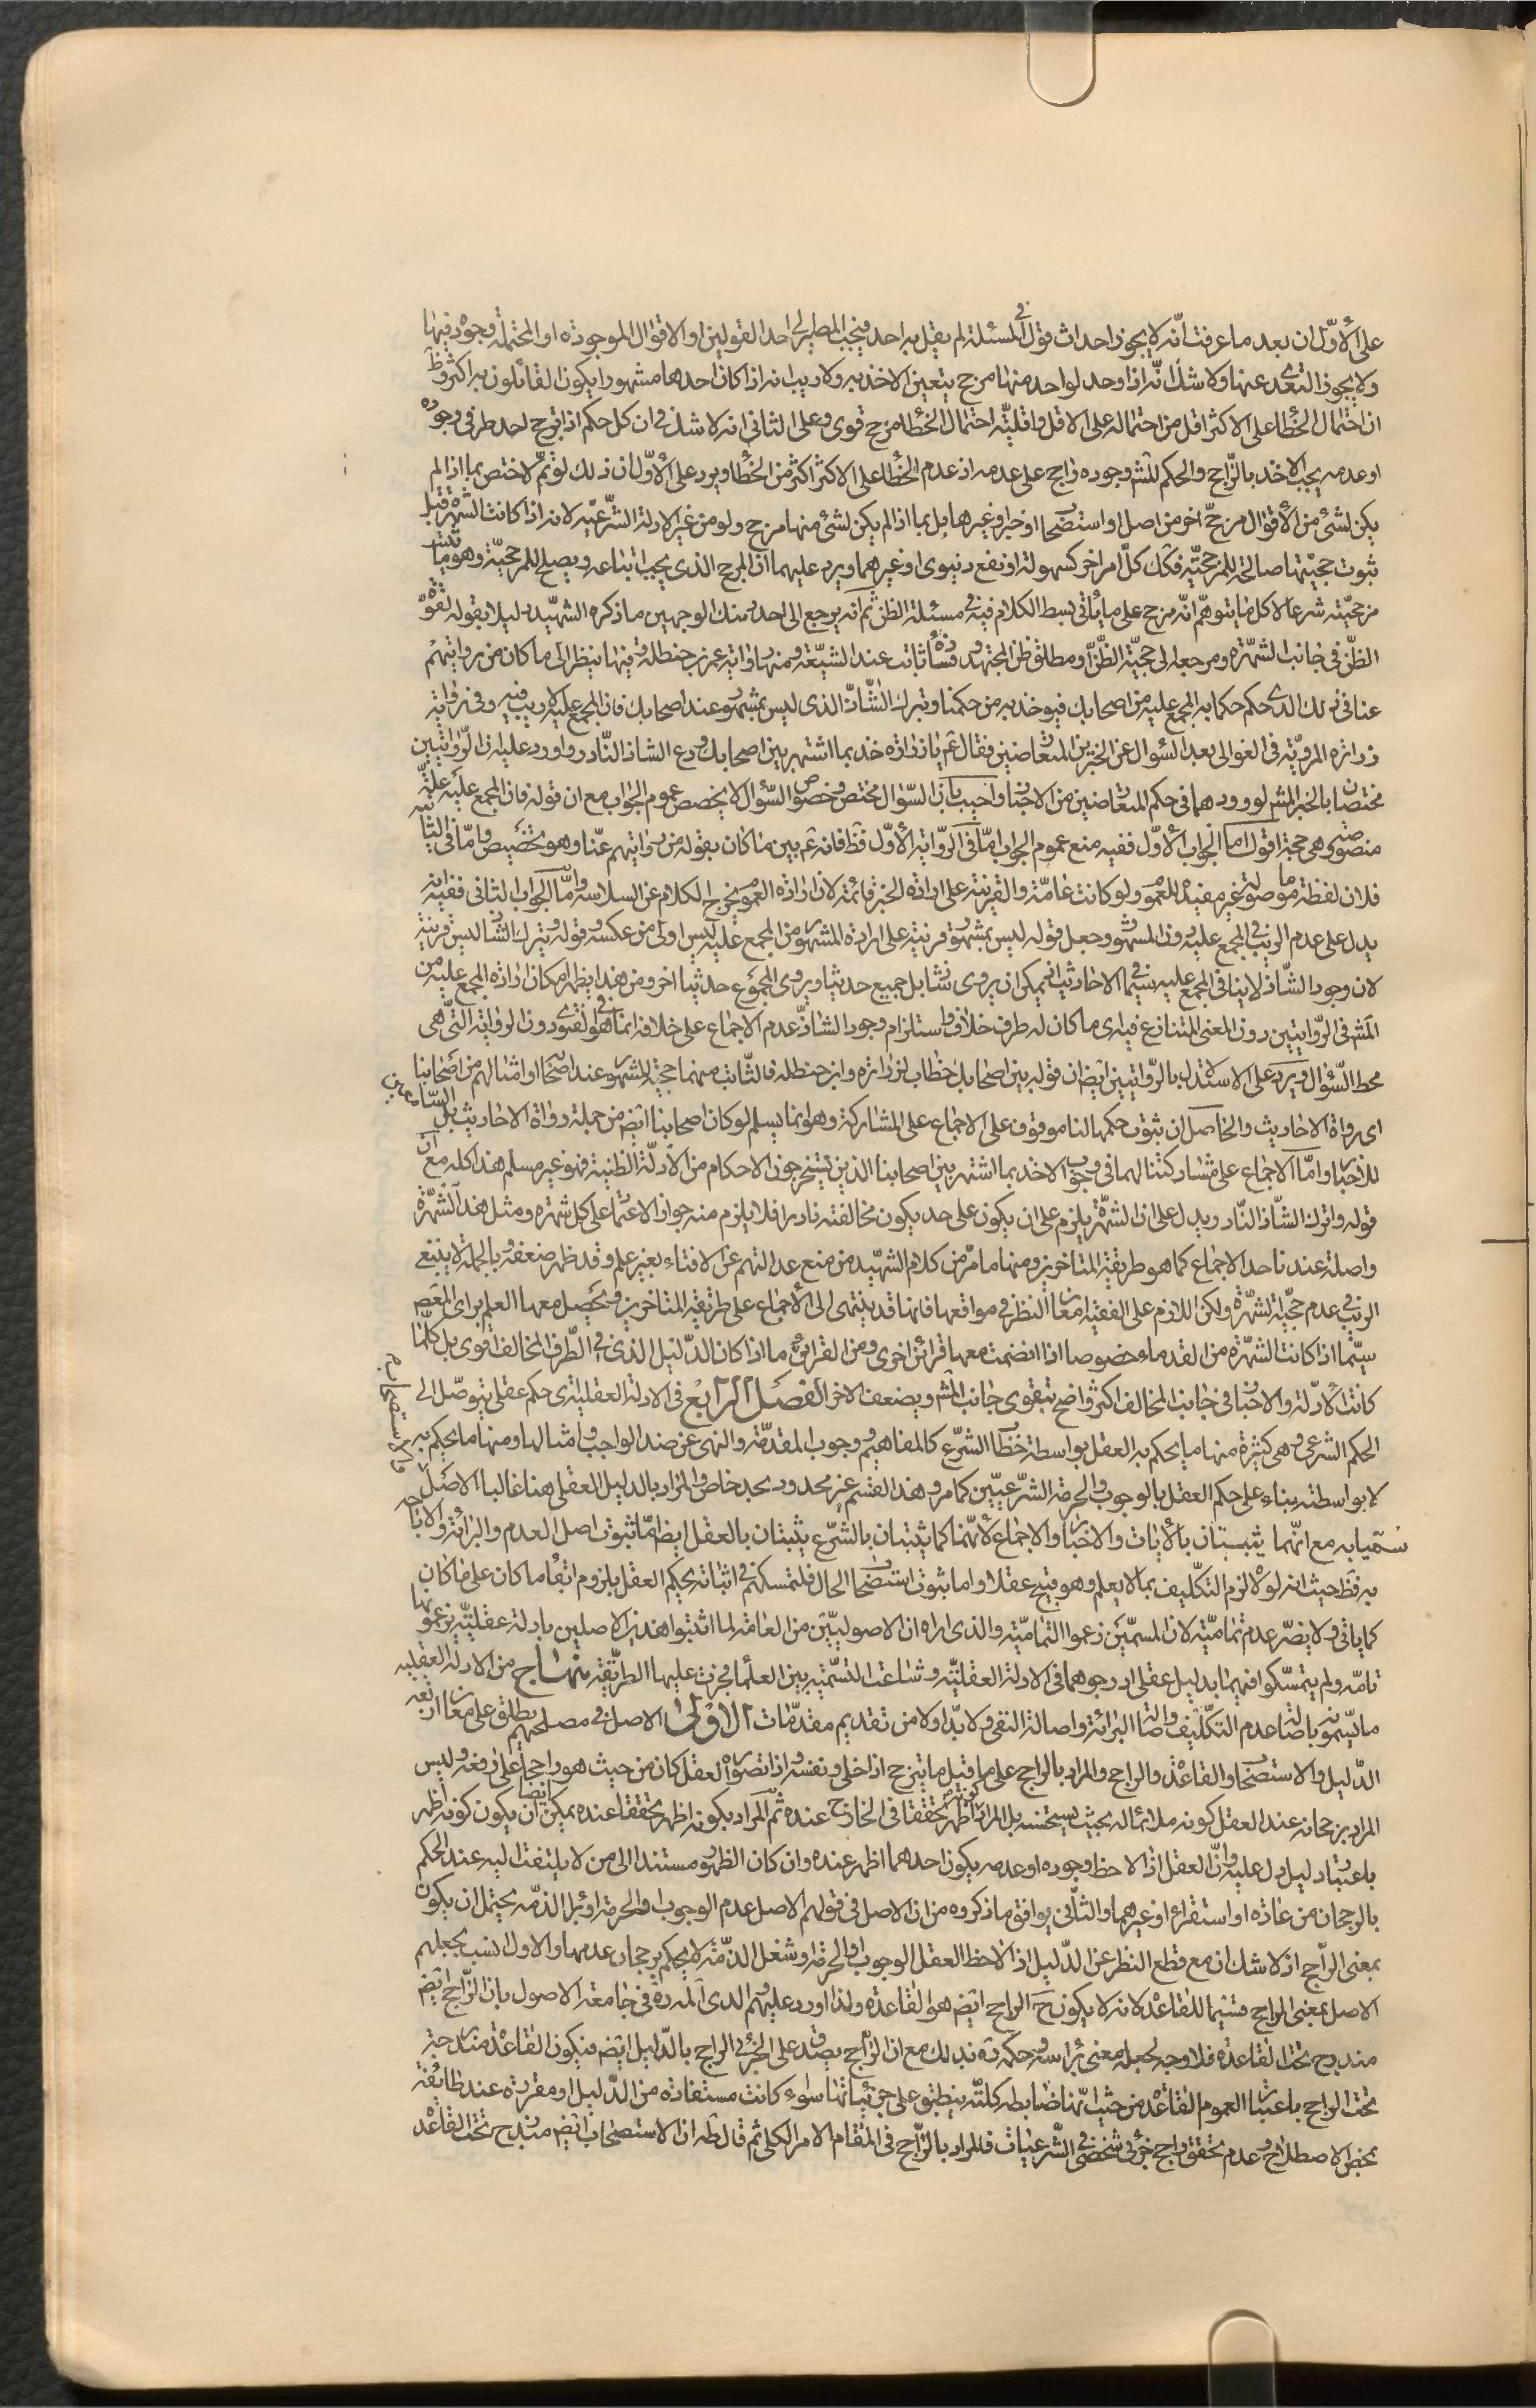 على الأوّل ان بعد ما عرفت انّه لا يجوز احداث قول في المسئلة لم يقل به احد فيجب المصير الى احد القولين او الاقوال الموجودة او المحتملة وجود فيها
ولا يجوز التعدى عنها ولا شك انّه اذا وجد لواحد منها مرجح يتعين الاخذ به ولا ريب انه اذا كان احدها مشهورا يكون القائلون به اكثر وظ
ان احتمال الخطأ على الاكثر اقل من احتماله على الاقل واقليّة احتمال الخطأ مرجح قوى وعلى الثانى انه لا شك فى ان كل حكم اذا ترجح احد طرفى وجوده
او عدمه يجب الاخذ بالرّاجح والحكم المش وجوده راجح على عدمه اذ عدم الخطأ على الاكثر اكثر من الخطأ ويرد على الأوّل ان ذلك لو تمّ لاختص بما اذا لم
يكن لشئ من الأقوال مرجّح اخر من اصل او استصحاب او خبر او غيرها بل بما اذا لم يكن لشئ منها مرجح ولو من غير الادلة الشّرعيّة لانه اذا كانت الشّهرة قبل
ثبوت حجيّتها صالحة للمرجحيّة فكك كلّ امر اخر كسهولة او نفع دنيوى او غيرهما ويرد عليهما ان المرجح الذى يجب اتباعه ويصلح للمرجحيّة وهو ما ثبت
مرجحيّته شرعا لا كل ما يتوهّم انّه مرجح على ما يأتى بسط الكلام فيه فى مسئلة الظن ثم انه يرجع الى احد هذين الوجهين ما ذكره الشهيد دليلا بقوله لقوّة
الظنّ فى جانب الشهرة ومرجعه الى حجيّة الظّنّ ومطلق ظن المجتهد وفساده ثابت عند الشيّعة ومنها رواية عمر بن حنظلة وفيها ينظر الى ما كان من روايتهم
عنا فى ذلك الذى حكم حكما به المجمع عليه من اصحابك فيؤخذ به من حكمنا ويترك الشّاذّ الذى ليس بمشهور عند اصحابك فان المجمع عليه لا ريب فيه وفى رواية
زرارة المرويّة فى الغوالى بعد السّؤال عن الخبرين المتعارضين فقال ع يا زرارة خذ بما اشتهر بين اصحابك ودع الشاذ النّادر واورد عليه ان الرّوايتين
مختصتان بالخبر المش لورودهما فى حكم المتعارضين من الاخبار واجيب بان السّؤال مختص وخصوص السّؤال لا يخصص عموم الجواب مع ان قوله فان المجمع عليه علّة
منصوصة وهى حجة اقول اما الجواب الأوّل ففيه منع عموم الجواب امّا فى الرّواية الأوّل فظ فانه ع بين ما كان بقوله من روايتهم عنّا وهو تخصيص وامّا فى الثانية
فلان لفظة ما موصولة غير مفيد للعموم ولو كانت عامّة والقرينة على ارادة الخبر قائمة لان ارادة العموم يخرج الكلام عن السلاسة وامّا الجواب الثانى ففيه انه
يدل على عدم الريب فى المجمع عليه دون المشهور وجعل قوله ليس بمشهور قرينة على ارادة المشهور من المجمع عليه ليس اولى من عكسه وقوله ويترك الشاذ ليس قرينة
لان وجود الشّاذ لا ينافى المجمع عليه سيّما فى الاحاديث اذ يمكن ان يروى شاذ بل جميع حديثا ويروى المجموع حديثا اخر ومن هذا يظهر امكان ارادة المجمع عليه من
المش فى الرّوايتين دون المعنى المتنازع فيه اى ما كان له طرف خلاف واستلزام وجود الشاذّ عدم الاجماع على خلافه انما هو فى الفتوى دون الرواية التى هى
محط السّؤال ويرد على الاستدلال بالرّوايتين ايض ان قوله بين اصحابك خطاب لزرارة وابن حنظلة فالثّابت منهما حجيّة المشهور عند اصحابهما وامثالهم من اصحابنا
اى رواة الاحاديث والحاصل ان ثبوت حكمهما لنا موقوف على الاجماع على المشاركة وهو انما يسلم لو كان اصحابنا ايض من جملة رواة الاحاديث بل السّامعين
للاخبار وامّا الاجماع على مشاركتنا لهما فى وجوب الاخذ بما اشتهر بين اصحابنا الذين يستخرجون الاحكام من الأدلّة الظنية فهو غير مسلم هذا كله مع ان
قوله واترك الشّاذ النّادر ويدل على ان الشهرة يلزم على ان يكون على حد يكون مخالفته نادرا فلا يلزم منه جواز الاعتماد على كل شهرة ومثل هذه الشّهرة
واصلة عندنا حد الاجماع كما هو طريقة المتاخرين ومنها ما مرّ من كلام الشهيد من منع عدالتهم عن الافتاء بغير علم وقد ظهر ضعفه وبالجملة لا ينبغى
الريب فى عدم حجيّة الشهرة ولكن اللازم على الفقيه امعان النظر فى مواقعها فانها قد ينتهى الى الأجماع على طريقة المتاخرين ويحصل معها العلم برأى المعصوم
سيّما اذا كانت الشهرة من القدماء خصوصا اذا انضمت معها قرائن اخرى ومن القرائن ما اذا كان الدّليل الذى فى الطّرف المخالف اقوى بل كلّما
كانت الأدلّة والاخبار فى جانب المخالف اكثر واضح يتقوى جانب المش ويضعف الاخر الفصل الرابع فى الادلة العقلية اى حكم عقلى يتوصّل الى
الحكم الشرعى وهى كثيرة منها ما يحكم به العقل بواسطة خطاب الشرع كالمفاهيم ووجوب المقدّمة والنهى عن ضد الواجب وامثالها ومنها ما يحكم به
لا بواسطته بناء على حكم العقل بالوجوب والحرمة الشّرعيّين كما مر وهذا القسم غير محدود بحد خاص والمراد بالدليل العقلى هنا غالبا الاصل والاستصحاب
سميا به مع انّهما يثبتان بالأيات والاخبار والاجماع لأنّهما كما يثبتان بالشّرع يثبتان بالعقل ايض امّا ثبوت اصل العدم والبرائة والاباحة
به فظ حيث انه لولاه لزم التكليف بما لا يعلم وهو قبيح عقلا واما ثبوت استصحاب الحال فلتمسكهم فى اثباته بحكم العقل بلزوم ابقاء ما كان على ما كان
كما يأتى ولا يضرّ عدم تماميّته لان المسمّين زعموا التماميّة والذى اراه ان الاصوليّين من العامّة لما اثبتوا هذين الاصلين بادلة عقليّة يزعمونها
تامّة ولم يتمسّكوا فيهما بدليل عقلى ادرجوهما فى الادلة العقليّة وشاعت التسّمية بين العلماء فجرت عليها الطريقة منهاج من الادلة العقلية
ما يسمّونه باصالة عدم التكليف واصالة البرائة واصالة النفى ولا بدّ اولا من تقديم مقدّمات الاولى الاصل فى مصطلحهم يطلق على معان اربعة
الدّليل والاستصحاب والقاعدة والراجح والمراد بالراجح على ما قيل ما يترجح اذا خلى ونفسه واذا تصوره العقل كان من حيث هو راجحا على رفعه وليس
المراد برجحانه عند العقل كونه ملائما له بحيث يستحسنه بل المراد كونه اظهر تحققا فى الخارج عنده ثم المراد بكونه اظهر تحققا عنده يمكن ايضا ان يكون كونه اظهر
باعتبار دليل دل عليه وان العقل اذا لاحظ وجوده او عدمه يكون احدهما اظهر عنده وان كان الظهور مستندا الى من لا يلتفت اليه عند الحكم
بالرجحان من عادة او استقراء او غيرهما والثانى يوافق ما ذكروه من ان الاصل فى قولهم الاصل عدم الوجوب او الحرمة او برائة الذمّة يحتمل ان يكون
بمعنى الرّاجح اذ لا شك ان مع قطع النظر عن الدّليل اذا لاحظ العقل الوجوب او الحرمة او شغل الذّمّة لا يحكم برجحان عدمها والاول انسب بجعلهم
الاصل بمعنى الراجح قسيما للقاعدة لانه لا يكون ح الراجح ايض هو القاعدة ولذا اورد عليهم الذى المدرة فى جامعة الاصول بان الرّاجح ايض
مندرج تحت القاعدة فلا وجه لجعله معنى برأسه وحكمه ة بذلك مع ان الرّاجح يصدق على الجزئى الراجح بالدّليل ايض فيكون القاعدة مندرجة
تحت الراجح باعتبار العموم القاعدة من حيث انّها ضابطة كليّة ينطبق على جزئياتها سواء كانت مستفادة من الدّليل او مقررة عند طائفة
بمحض الاصطلاح وعدم تحقق راجح جزئى شخصى فى الشّرعيات فالمراد بالرّاجح فى المقام الامر الكلى ثم قال ظه ان الاستصحاب ايض مندرج تحت القاعدة